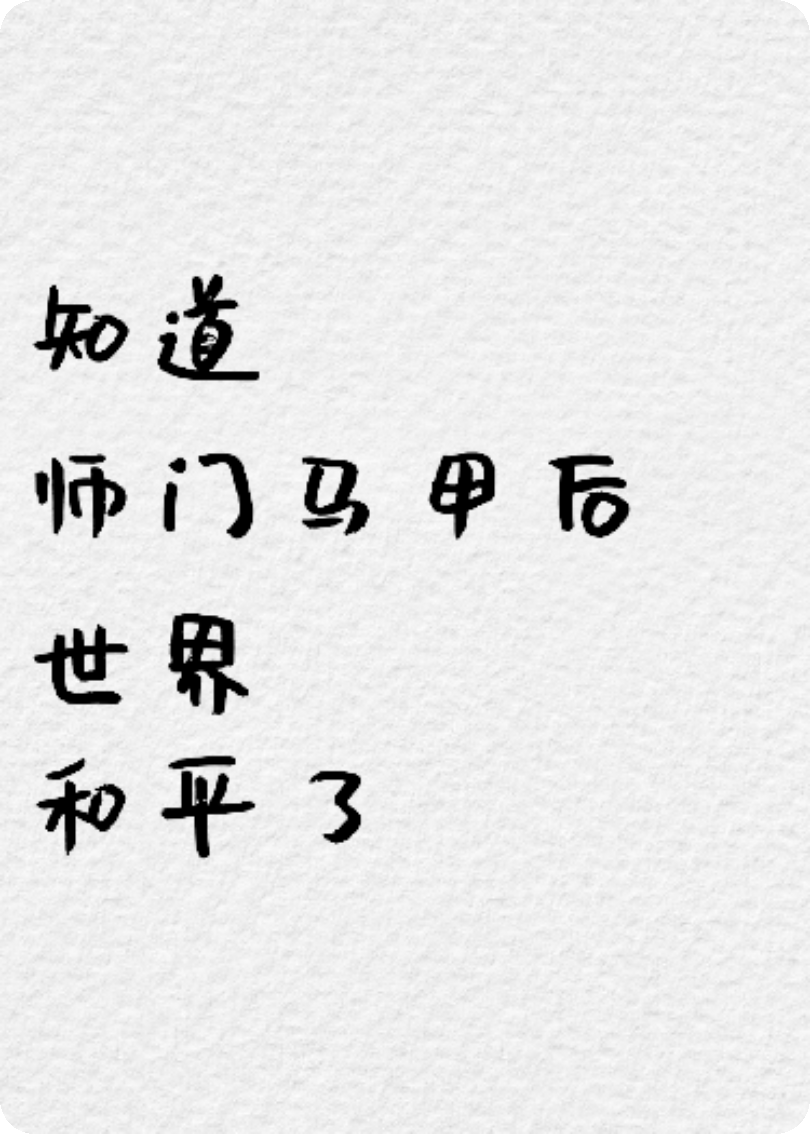 知道
师门马甲后
世界
和平了